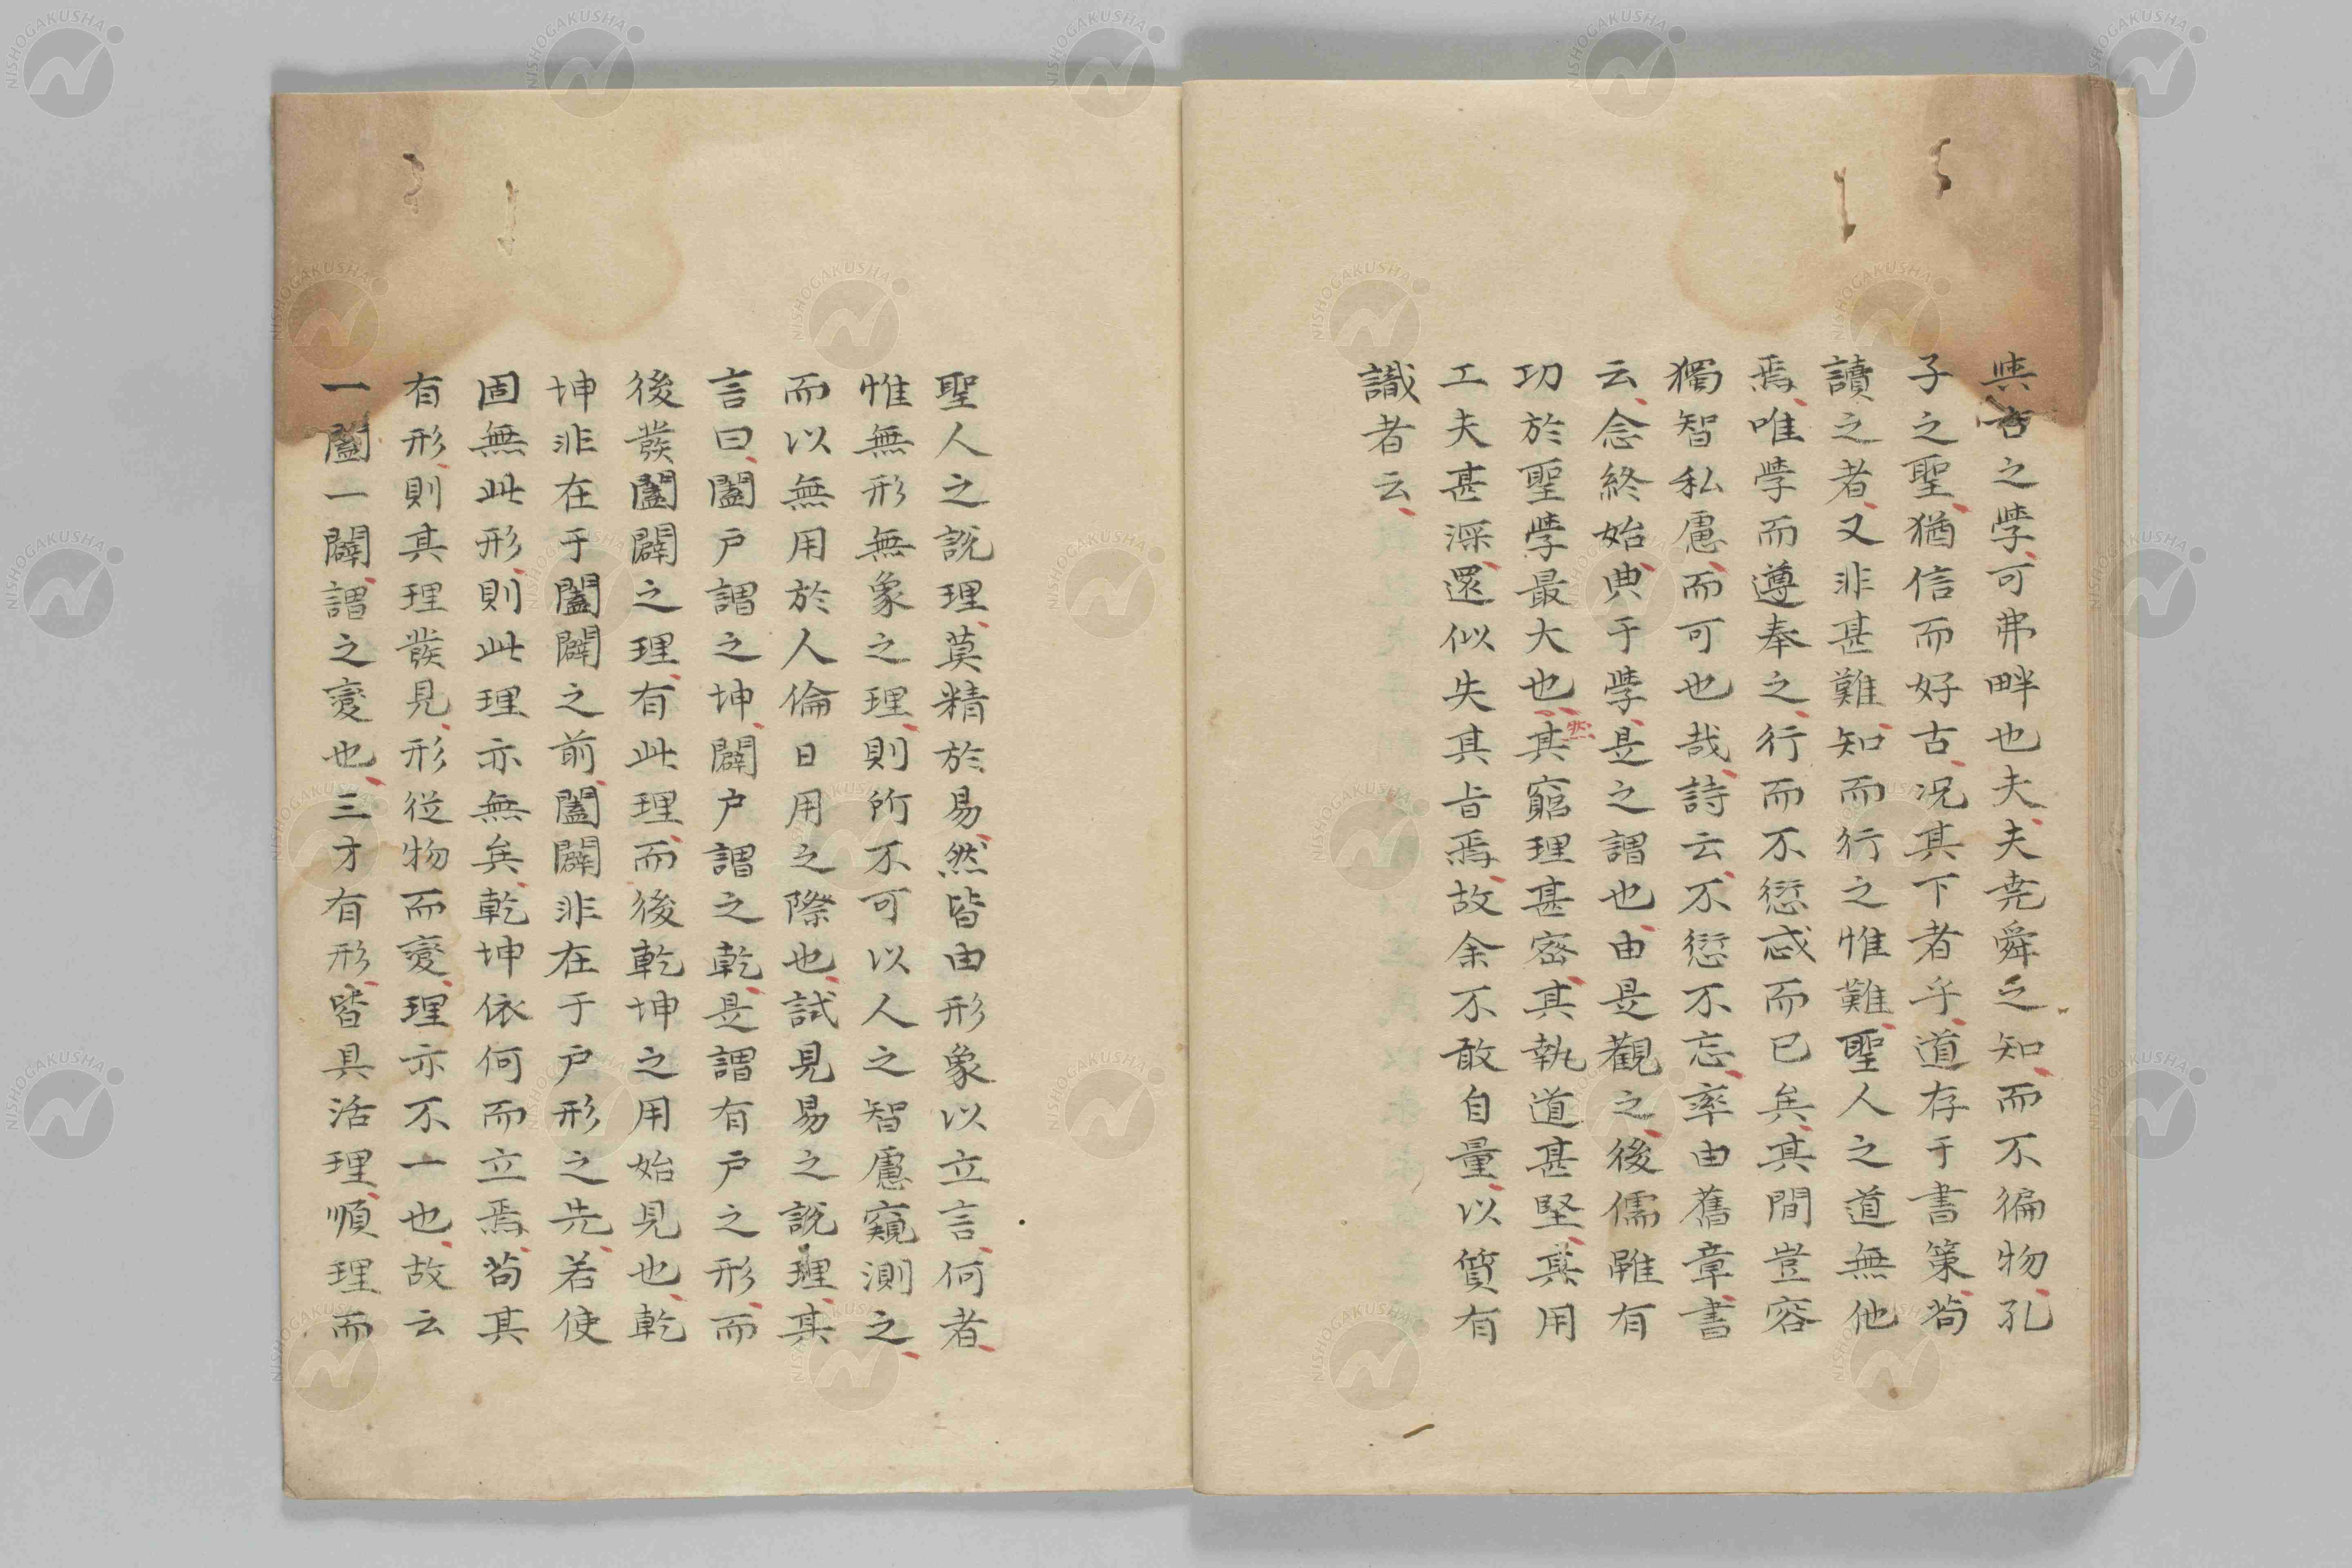 與古之學可弗畔也夫夫尭舜之知而不徧物孔
子之聖猶信而好古况其下者乎道存于書策苟
讀之者又非甚難知而行之惟難聖人之道無他
焉唯學而遵奉之行而不愆忒而已矣其間豈容
獨智私慮而可也哉詩云不愆不忘率由舊章書
云念終始典于學是之謂也由是觀之後儒雖有
功於聖學最大也其窮理甚密其執道甚堅其用
工夫甚深還似失其旨焉故余不敢自量以質有
識者云
聖人之說理莫精於易然皆由形象以立言何者
惟無形無象之理則所不可以人之智慮窺測之
而以無用於人倫日用之際也試見易之說理其
言曰闔戶謂之坤闢戶謂之乾是謂有戶之形而
後發闔闢之理有此理而後乾坤之用始見也乾
坤非在于闔闢之前闔闢非在于戶形之先若使
固無此形則此理亦無矣乾坤依何而立焉苟其
有形則其理發見形從物而變理亦不一也故云
一闔一闢謂之變也三才有形皆具活理順理而
NISHOGAKUSHA